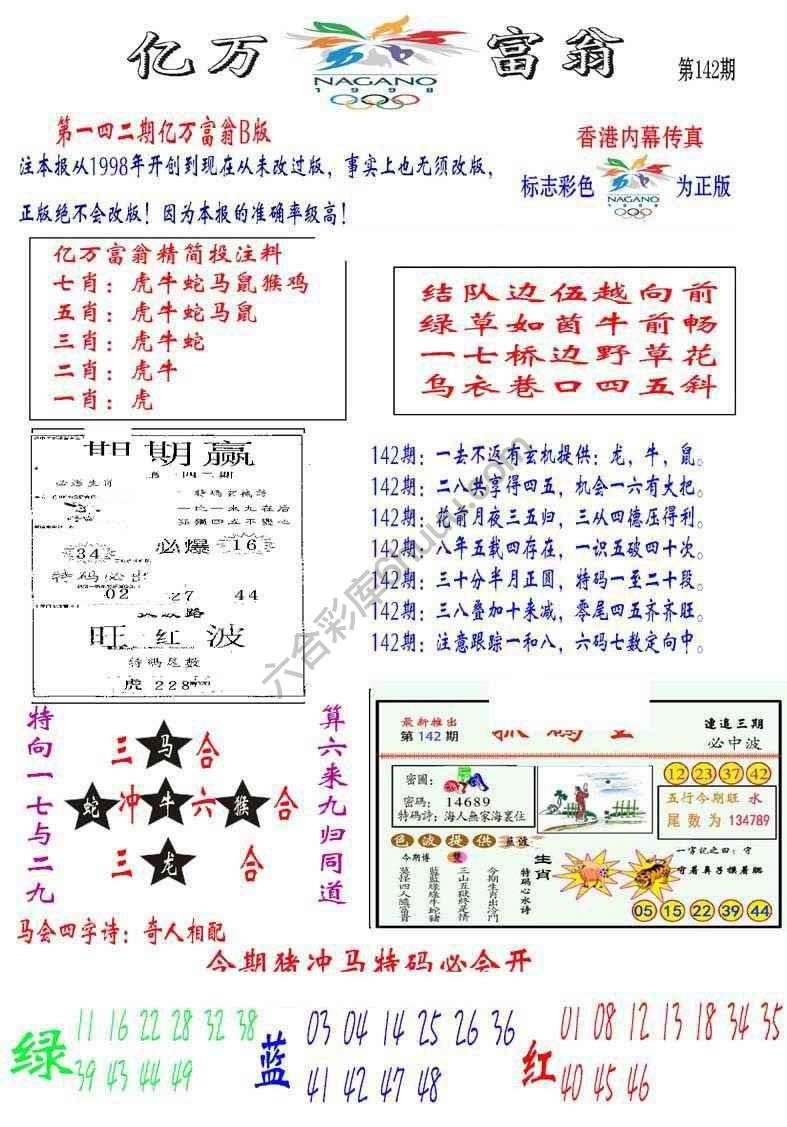 亿万富翁
NAGANO
1998
第142期
第一四二期亿万富翁B版
注本报从1998年开创到现在从未改过版，事实上也无须改版，
正版绝不会改版！因为本报的准确率级高！
香港内幕传真
标志彩色 NAGANO 为正版
亿万富翁精简投注料
七肖：虎牛蛇马鼠猴鸡
五肖：虎牛蛇马鼠
三肖：虎牛蛇
二肖：虎牛
一肖：虎
结队边伍越向前
绿草如茵牛前畅
一七桥边野草花
乌衣巷口四五斜
期赢
必爆
34
16
特码必出
02 27 44
旺红波
特码尾数
虎228
142期：一去不返有玄机提供：龙，牛，鼠。
142期：二八共享得四五，机会一六有大把。
142期：花前月夜三五归，三从四德压得利。
142期：八年五载四存在，一识五破四十次。
142期：三十分半月正圆，特码一至二十段。
142期：三八叠加十来减，零尾四五齐齐旺。
142期：注意跟踪一和八，六码七数定向中。
六合彩库6huu.com
特向一七与二九
三马合
蛇冲牛六猴合
三龙合
算六来九归同道
马会四字诗：奇人相配
最新推出
第142期
連追三期
必中波
密圖：
密碼：14689
特碼詩：海人無家海裏住
12 23 37 42
五行今期旺 水
尾数为 134789
色波提供 藍波
今期博 雙
三山五嶽終是情
今期生肖出冷門
特碼心水诗
生肖
一字記之曰：守
守着鼻子摸着肥
05 15 22 39 44
今期猪冲马特码必会开
绿 11 16 22 28 32 38
39 43 44 49
蓝 03 04 14 25 26 36
41 42 47 48
红 01 08 12 13 18 34 35
40 45 46